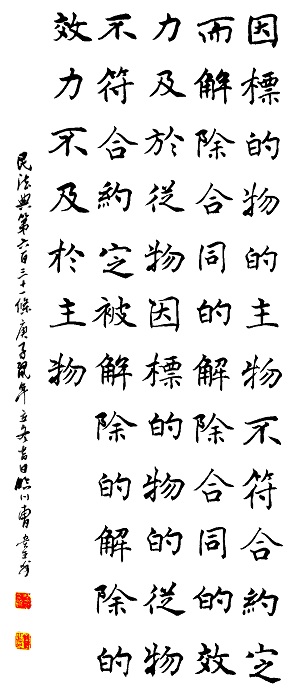 因標的物的主物不符合約定
而解除合同的解除合同的效
力及於從物因標的物的從物
不符合約定被解除的解除的
效力不及於主物
民法典第六百三十一條庚子鼠年立冬吉日臨川曹